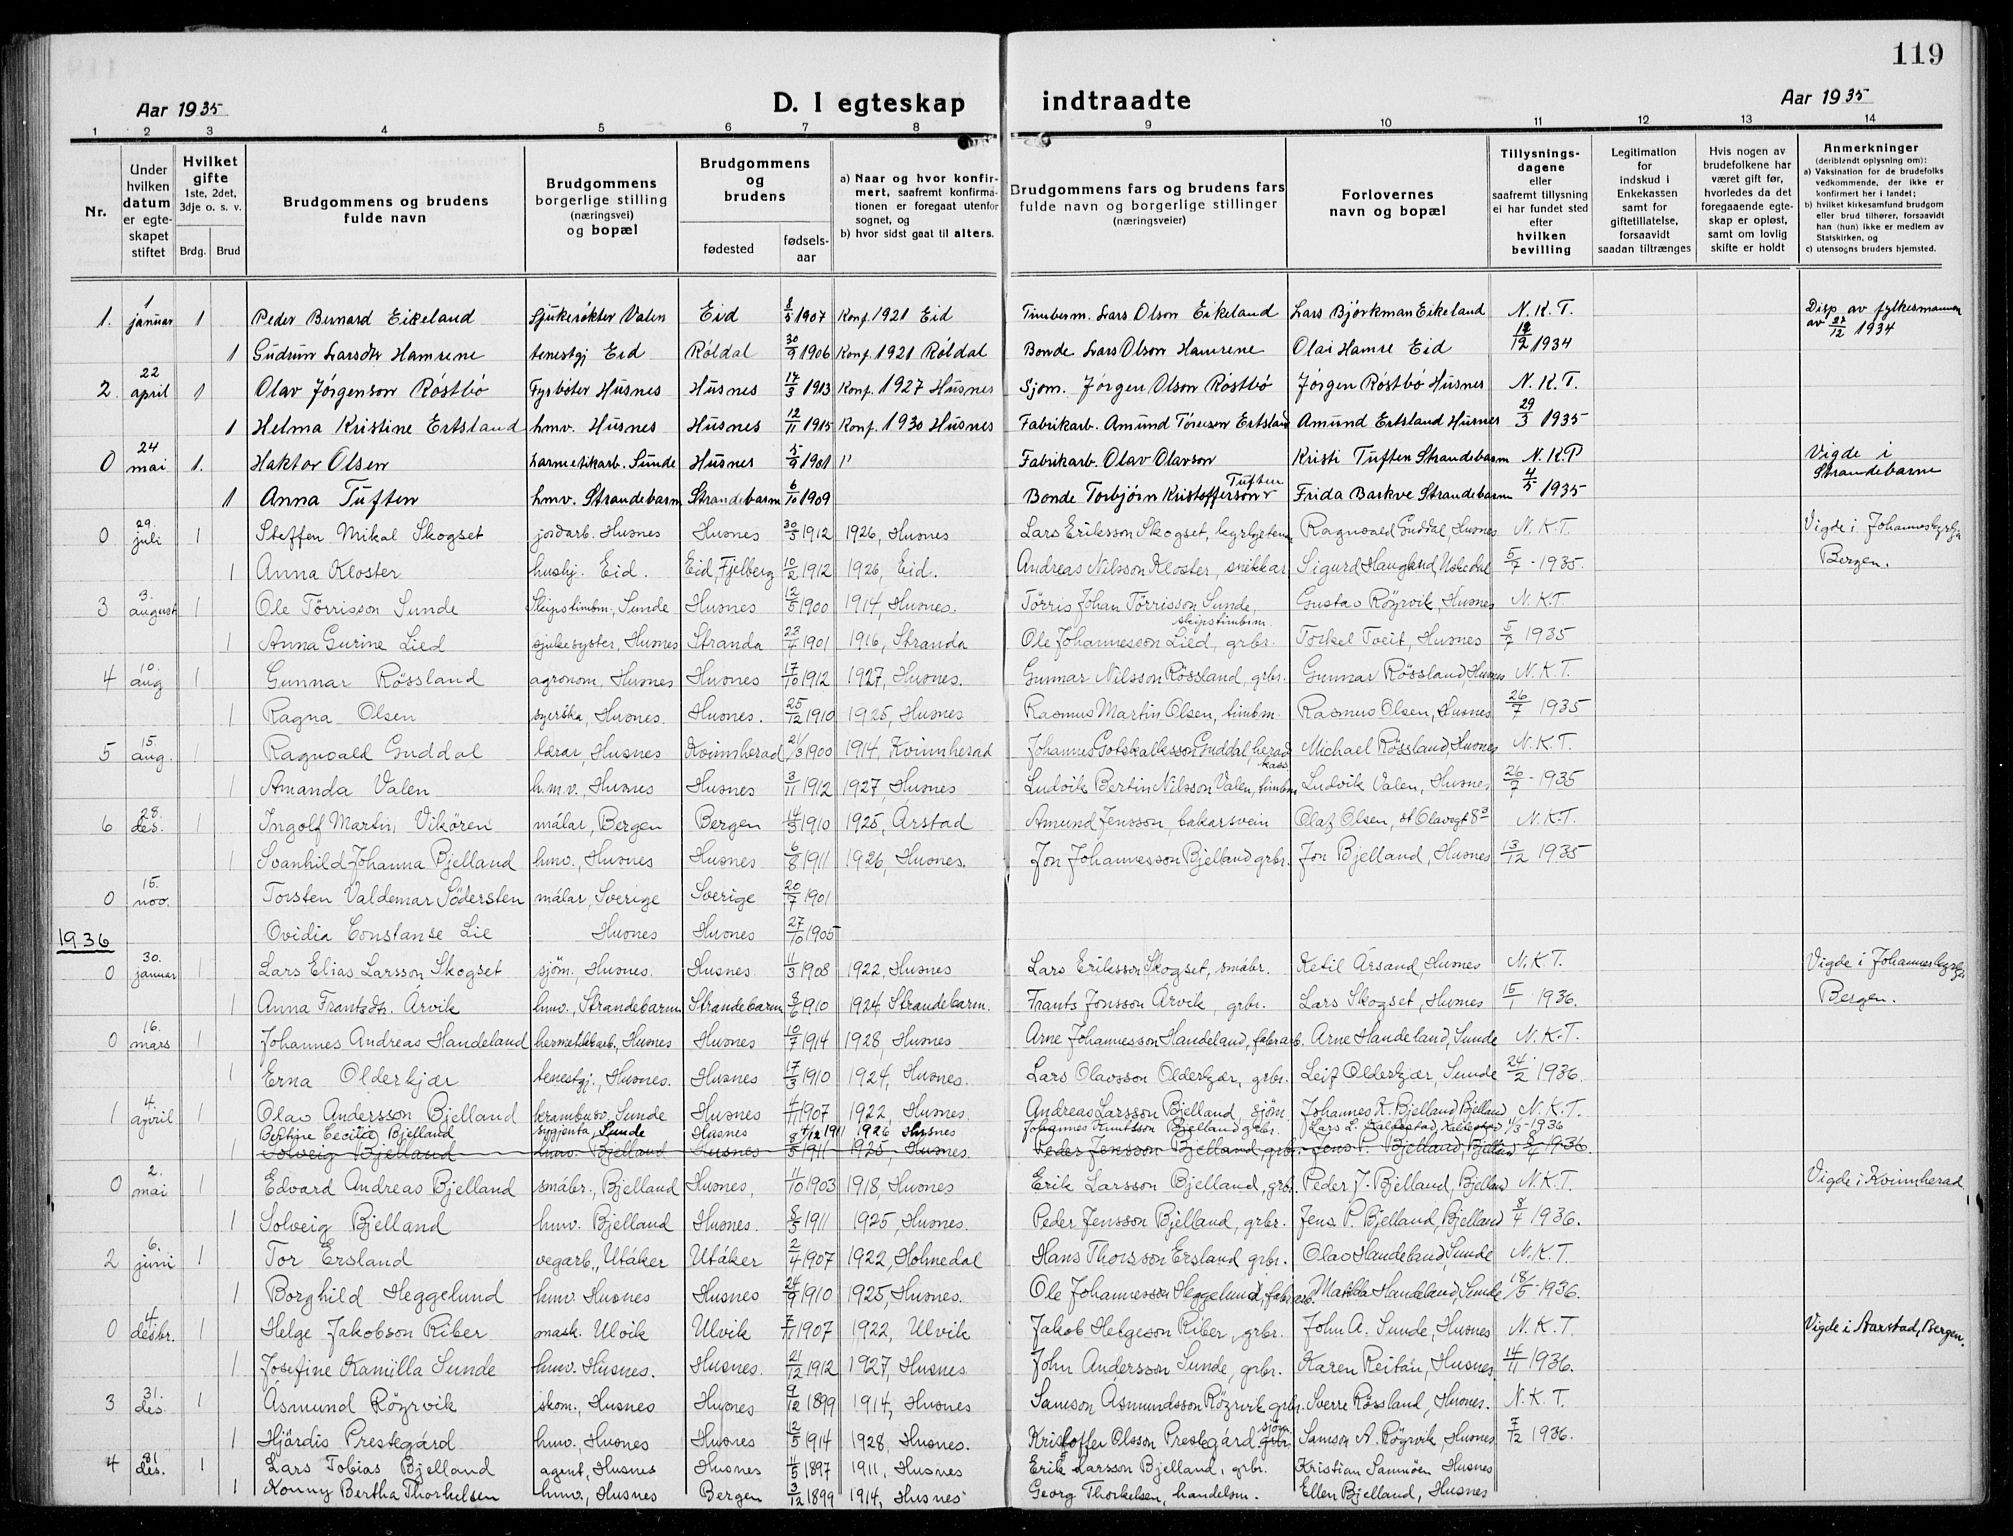 119
Aar 1935 D. I egteskap indtraadte Aar 1935
1 2 3 4 5 6 7 8 9 10 11 12 13 14
Nr.
Under hvilken datum er egteskapet stiftet
Hvilket gifte 1ste, 2det, 3dje o. s. v. Brdg. Brud
Brudgommens og brudens fulde navn
Brudgommens borgerlige stilling (næringsvei) og bopæl
Brudgommens og brudens fødested fødselsaar
a) Naar og hvor konfirmert, saafremt konfirmationen er foregaat utenfor sognet, og
b) hvor sidst gaat til alters.
Brudgommens fars og brudens fars fulde navn og borgerlige stillinger (næringsveier)
Forlovernes navn og bopæl
Tillysningsdagene eller saafremt tillysning ei har fundet sted efter hvilken bevilling
Legitimation for indskud i Enkekassen samt for giftetillatelse, forsaavidt saadan tiltrænges
Hvis nogen av brudefolkene har været gift før, hvorledes da det foregaaende egteskap er opløst, samt om lovlig skifte er holdt
Anmerkninger (deriblandt oplysning om):
a) Vaksination for de brudefolks vedkommende, der ikke er konfirmert her i landet;
b) hvilket kirkesamfund brudgom eller brud tilhører, forsaavidt han (hun) ikke er medlem av Statskirken, og
c) utensogns bruders hjemsted.
1. 1 januar 1 Peder Bernard Eikeland Sjukerøkter Valen Eid 8/5 1907 Konf. 1921 Eid Timberm. Lars Olson Eikeland Lars Bjørkman Eikeland N. K. T. Disp av fylkesmannen av 27/12 1934
1 Gudrun Larsdtr Hamrene tenestgj Eid Røldal 30/9 1906 Konf. 1921 Røldal Bonde Lars Olson Hamrene Olai Hamre Eid 12/12 1934
2. 22 april 1 Olav Jörgenson Röstbö Fyrbøter Husnes Husnes 17/3 1913 Konf. 1927 Husnes Sjøm. Jörgen Olson Röstbö Jörgen Röstbö Husnes N. K. T.
1 Helma Kristine Ertsland hmv. Husnes Husnes 12/11 1915 Konf. 1930 Husnes Fabrikarb. Amund Töresson Ertsland Amund Ertsland Husnes 29/3 1935
0 24 mai 1. Haktor Olsen hermetikarb. Sunde Husnes 5/9 1901 Fabrikarb. Olav Olavson Kristi Tuften Strandebarm N. K. T Vigde i Strandebarm
1 Anna Tuften hmv. Strandebarm Strandebarm 6/10 1909 Bonde Torbjörn Kristofferson Tuften Frida Barkve Strandebarm 4/5 1935
0 29. juli 1 Steffen Mikal Skogset jordarb. Husnes Husnes 30/3 1912 1926, Husnes Lars Eriksson Skogset, kyrkjetenar Ragnvald Guddal, Husnes N. K. T. Vigde i Johanneskyrkja Bergen.
1 Anna Kloster hushj. Eid. Eid, Fjelberg 10/2 1912 1926, Eid. Andreas Nilsson Kloster, snikkar Sigurd Haugland, Uskedal 5/7 - 1935.
3 3. august 1 Ole Tørrisson Sunde Skipstimbm., Sunde Husnes 12/5 1900 1914, Husnes. Tørris Johan Tørrisson Sunde, skipstimbrm. Gustav Röyrvik, Husnes N. K. T.
1 Anna Gurine Lied sjukesyster, Husnes Stranda 23/4 1901 1916, Stranda Ole Johannesson Lied, grbr. Torkel Tveit, Husnes 5/7 1935
4 10. aug 1 Gunnar Røssland agronom, Husnes Husnes 17/10 1912 1927, Husnes. Gunnar Nilsson Røssland, grbr. Gunnar Røssland, Husnes N. K. T.
1 Ragna Olsen syerska, Husnes. Husnes. 25/12 1910 1925, Husnes Rasmus Martin Olsen, timbm. Rasmus Olsen, Husnes 26/7 1935
5 15. aug. 1 Ragnvald Guddal lærar, Husnes Kvinnherad 21/3 1900 1914, Kvinnherad Johannes Gotskalksson Guddal, heradkass. Michael Røssland, Husnes N. K. T.
1 Amanda Valen h.m.v., Husnes Husnes 3/11 1912 1927, Husnes Ludvik Bertin Nilsson Valen, timbm Ludvik Valen, Husnes 26/7 - 1935
6 28. des. 1 Ingolf Martin Vikören målar, Bergen Bergen 14/3 1910 1925, Årstad Amund Jensson, bakarsvein Olaf Olsen, st Olavsgt 8 N. K. T.
1 Svanhild Johanna Bjelland hmv., Husnes Husnes 6/8 1911 1926, Husnes. Jon Johannesson Bjelland grbr. Jon Bjelland, Husnes 13/12 1935
0 15. nov. Torsten Valdemar Södersten målar, Sverige Sverige 20/7 1901
Ovidia Constanse Lie Husnes Husnes 27/10 1905
1936
0 30. januar 1 Lars Elias Larsson Skogset sjöm., Husnes. Husnes. 11/3 1908 1922, Husnes Lars Eriksson Skogset, småbr. Ketil Årsand, Husnes N. K. T. Vigde i Johanneskyrkja Bergen.
1 Anna Frantsdtr. Årvik hmv., Strandebarm Strandebarm 8/6 1910 1924, Strandebarm. Frants Jonsson Årvik, grbr. Lars Skogset, Husnes 15/1 1936.
0 16. mars 1 Johannes Andreas Handeland hermetikkarb., Husnes Husnes 10/7 1914 1928, Husnes Arne Johannesson Handeland, fabrarb. Arne Handeland, Sunde N. K. T.
1 Erna Olderkjær tenestgj., Husnes. Husnes 17/3 1910 1924, Husnes. Lars Olavsson Olderkjær, grbr. Leif Olderkjær, Sunde 24/2 1936.
1 4. april 1 Olav Andersson Bjelland krambusv, Sunde Husnes 4/11 1907 1922, Husnes. Andreas Larsson Bjelland, sjøm. Johannes K. Bjelland Bjelland N. K. T.
Bertine Cecilie Bjelland sygjenta, Sunde Husnes 4/12 1911 1926 Husnes Johannes Knutsson Bjelland grbr. 11/3 - 1936
1 Solveig Bjelland hmv. Bjelland Husnes 8/3 1911 1925, Husnes. Peder Jensson Bjelland, grbr. Jens P. Bjelland, Bjelland 8/4 1936.
0 2. mai 1 Edvard Andreas Bjelland småbr., Bjelland Husnes, 11/10 1903 1918, Husnes Erik Larsson Bjelland, grbr. Peder J. Bjelland, Bjelland N. K. T. Vigde i Kvinnherad.
1 Solveig Bjelland hmv. Bjelland Husnes. 8/3 1911 1925, Husnes. Peder Jensson Bjelland, grbr. Jens P. Bjelland, Bjelland 8/4 1936.
2 6. juni 1 Tor Ersland vegarb., Utåker Utåker 2/4 1907 1922, Holmedal Hans Thorsson Ersland grbr. Olav Handeland, Sunde N. K. T.
1 Borghild Heggelund hmv. Husnes Husnes 24/9 1910 1925, Husnes. Ole Johannesson Heggelund, fabrarb. Matilda Handeland, Sunde 18/5 - 1936.
0 4. desbr. 1 Helge Jakobson Riber mask. Ulvik Ulvik 7/11 1907 1922, Ulvik Jakob Helgeson Riber, grbr. John A. Sunde, Husnes N. K. T. Vigde i Aarstad, Bergen.
1 Josefine Kamilla Sunde hmv. Husnes. Husnes. 21/12 1912 1927, Husnes John Andersson Sunde, grbr. Karen Reitan, Husnes. 14/11 1936.
3 31. des. 1 Åsmund Röyrvik skom., Husnes Husnes 9/12 1899 1914, Husnes Samson Åsmundsson Röyrvik grbr. Sverre Røssland, Husnes. N. K. T.
1 Hjördis Prestegård hmv. Husnes Husnes 2/5 1914 1928, Husnes. Kristoffer Olsson Prestegård sjøm. grbr. Samson A. Röyrvik, Husnes 7/12 1936.
4 31 des. 1 Lars Tobias Bjelland agent, Husnes Husnes 4/5 1897 1911, Husnes Erik Larsson Bjelland, grbr. Kristian Samnöen Husnes
1 Konny Bertha Thorkelsen hmv., Husnes Bergen 3/12 1899 1914, Husnes Georg Thorkelsen, handelsm. Ellen Bjelland, Husnes